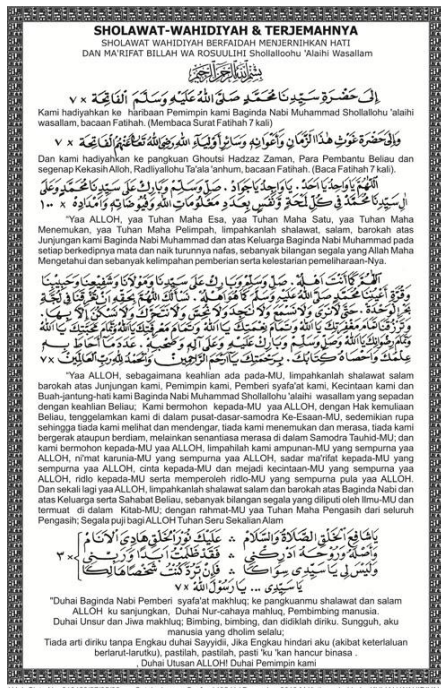 SHOLAWAT-WAHIDIYAH & TERJEMAHNYA
SHOLAWAT WAHIDIYAH BERFAIDAH MENJERNIHKAN HATI
DAN MA'RIFAT BILLAH WA ROSUULIHI Shollalloohu 'Alaihi Wasallam
بِسْمِ اللهِ الرَّحْمٰنِ الرَّحِيْمِ
اِلٰى حَضْرَةِ سَيِّدِنَا مُحَمَّدٍ صَلَّى اللهُ عَلَيْهِ وَسَلَّمَ اَلْفَاتِحَة ٧×
Kami hadiyahkan ke haribaan Pemimpin kami Baginda Nabi Muhammad Shollallohu 'alaihi
wasallam, bacaan Fatihah. (Membaca Surat Fatihah 7 kali)
وَاِلٰى حَضْرَةِ غَوْثِ هٰذَا الزَّمَانِ وَاَعْوَانِهِ وَسَائِرِ اَوْلِيَآءِ اللهِ رَضِيَ اللهُ تَعَالٰى عَنْهُمْ اَلْفَاتِحَة ٧×
Dan kami hadiyahkan ke pangkuan Ghoutsi Hadzaz Zaman, Para Pembantu Beliau dan
segenap Kekasih Alloh, Radliyallohu Ta'ala 'anhum, bacaan Fatihah. (Baca Fatihah 7 kali).
اَللّٰهُمَّ يَاوَاحِدُ يَااَحَدْ. يَاوَاجِدُ يَاجَوَادْ. صَلِّ وَسَلِّمْ وَبَارِكْ عَلٰى سَيِّدِنَا مُحَمَّدٍ وَعَلٰى
اٰلِ سَيِّدِنَا مُحَمَّدٍ فِى كُلِّ لَمْحَةٍ وَنَفَسٍ بِعَدَدِ مَعْلُوْمَاتِ اللهِ وَفُيُوْضَاتِهِ وَاَمْدَادِهْ ١٠٠×
"Yaa ALLOH, yaa Tuhan Maha Esa, yaa Tuhan Maha Satu, yaa Tuhan Maha
Menemukan, yaa Tuhan Maha Pelimpah, limpahkanlah shalawat, salam, barokah atas
Junjungan kami Baginda Nabi Muhammad dan atas Keluarga Baginda Nabi Muhammad pada
setiap berkedipnya mata dan naik turunnya nafas, sebanyak bilangan segala yang Allah Maha
Mengetahui dan sebanyak kelimpahan pemberian serta kelestarian pemeliharaan-Nya.
اَللّٰهُمَّ كَمَآ اَنْتَ اَهْلُهْ. صَلِّ وَسَلِّمْ وَبَارِكْ عَلٰى سَيِّدِنَا وَمَوْلَانَا وَشَفِيْعِنَا وَحَبِيْبِنَا
وَقُرَّةِ اَعْيُنِنَا مُحَمَّدٍ صَلَّى اللهُ عَلَيْهِ وَسَلَّمَ كَمَا هُوَ اَهْلُهْ. نَسْأَلُكَ اللّٰهُمَّ بِحَقِّهِ اَنْ تُغْرِقَنَا فِى لُجَّةِ
بَحْرِ الْوَحْدَةْ. حَتّٰى لَا نَرٰى وَلَا نَسْمَعَ وَلَا نَجِدَ وَلَا نُحِسَّ وَلَا نَتَحَرَّكَ وَلَا نَسْكُنَ اِلَّا بِهَا.
وَتَرْزُقَنَا تَمَامَ مَغْفِرَتِكَ يَا اَللهْ وَتَمَامَ نِعْمَتِكَ يَا اَللهْ وَتَمَامَ مَعْرِفَتِكَ يَا اَللهْ وَتَمَامَ مَحَبَّتِكَ يَا اَللهْ
وَتَمَامَ رِضْوَانِكَ يَا اَللهْ وَصَلِّ وَسَلِّمْ وَبَارِكْ عَلَيْهِ وَعَلٰى اٰلِهِ وَصَحْبِهْ. عَدَدَ مَا اَحَاطَ بِهِ
عِلْمُكَ وَاَحْصَاهُ كِتَابُكْ. بِرَحْمَتِكَ يَا اَرْحَمَ الرَّاحِمِيْنْ وَالْحَمْدُ لِلّٰهِ رَبِّ الْعَالَمِيْنْ ٧×
"Yaa ALLOH, sebagaimana keahlian ada pada-MU, limpahkanlah shalawat salam
barokah atas Junjungan kami, Pemimpin kami, Pemberi syafa'at kami, Kecintaan kami dan
Buah-jantung-hati kami Baginda Nabi Muhammad Shollallohu 'alaihi wasallam yang sepadan
dengan keahlian Beliau; Kami bermohon kepada-MU yaa ALLOH, dengan Hak kemuliaan
Beliau, tenggelamkan kami di dalam pusat-dasar-samodra Ke-Esaan-MU, sedemikian rupa
sehingga tiada kami melihat dan mendengar, tiada kami menemukan dan merasa, tiada kami
bergerak ataupun berdiam, melainkan senantiasa merasa di dalam Samodra Tauhid-MU; dan
kami bermohon kepada-MU yaa ALLOH, limpahilah kami ampunan-MU yang sempurna yaa
ALLOH, ni'mat karunia-MU yang sempurna yaa ALLOH, sadar ma'rifat kepada-MU yang
sempurna yaa ALLOH, cinta kepada-MU dan mejadi kecintaan-MU yang sempurna yaa
ALLOH, ridlo kepada-MU serta memperoleh ridlo-MU yang sempurna pula yaa ALLOH.
Dan sekali lagi yaa ALLOH, limpahkanlah shalawat salam dan barokah atas Baginda Nabi dan
atas Keluarga serta Sahabat Beliau, sebanyak bilangan segala yang diliputi oleh Ilmu-MU dan
termuat di dalam Kitab-MU; dengan rahmat-MU yaa Tuhan Maha Pengasih dari seluruh
Pengasih; Segala puji bagi ALLOH Tuhan Seru Sekalian Alam
يَا شَافِعَ الْخَلْقِ الصَّلَاةُ وَالسَّلَامْ ۞ عَلَيْكَ نُوْرَ الْخَلْقِ هَادِيَ الْاَنَامْ
وَاَصْلَهُ وَرُوْحَهُ اَدْرِكْنِى ۞ فَقَدْ ظَلَمْتُ اَبَدًا وَرَبِّنِى
وَلَيْسَ لِى يَا سَيِّدِى سِوَاكَا ۞ فَاِنْ تَرُدَّ كُنْتُ شَخْصًا هَالِكَا
٣×
يَا سَيِّدِى ... يَا رَسُوْلَ اللهْ ٧×
"Duhai Baginda Nabi Pemberi syafa'at makhluq; ke pangkuanmu shalawat dan salam
ALLOH ku sanjungkan, Duhai Nur-cahaya mahluq, Pembimbing manusia.
Duhai Unsur dan Jiwa makhluq; Bimbing, bimbing, dan didiklah diriku. Sungguh, aku
manusia yang dholim selalu;
Tiada arti diriku tanpa Engkau duhai Sayyidi, Jika Engkau hindari aku (akibat keterlaluan
berlarut-larutku), pastilah, pastilah, pasti 'ku 'kan hancur binasa .
, Duhai Utusan ALLOH! Duhai Pemimpin kami